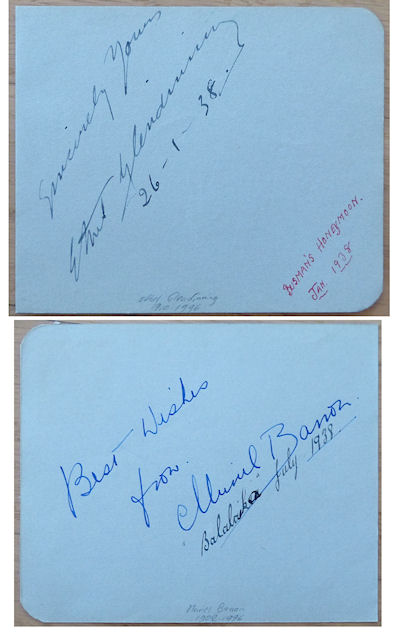 Sincerely Yours
Ethel Glendinning
26-1-38.
BUSMAN'S HONEYMOON.
JAN 1938
Ethel Glendinning
1910-1996
Best Wishes
from.
Muriel Barron.
Balalaika July 1938
Muriel Barron
1906-1996